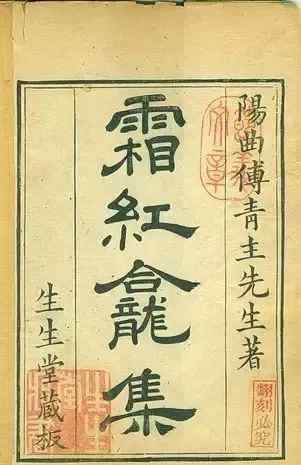 陽曲傅青主先生著
霜紅龕集
生生堂藏板
翻刻必究